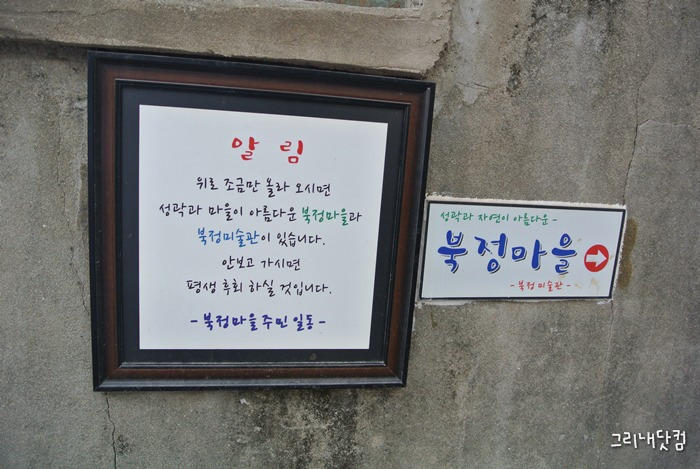 알 림
위로 조금만 올라 오시면
성곽과 마을이 아름다운 북정마을과
북정미술관이 있습니다.
안보고 가시면
평생 후회 하실 것입니다.
- 북정마을 주민 일동 -
성곽과 자연이 아름다운 -
북정마을
- 북정 미술관 -
그리내닷컴